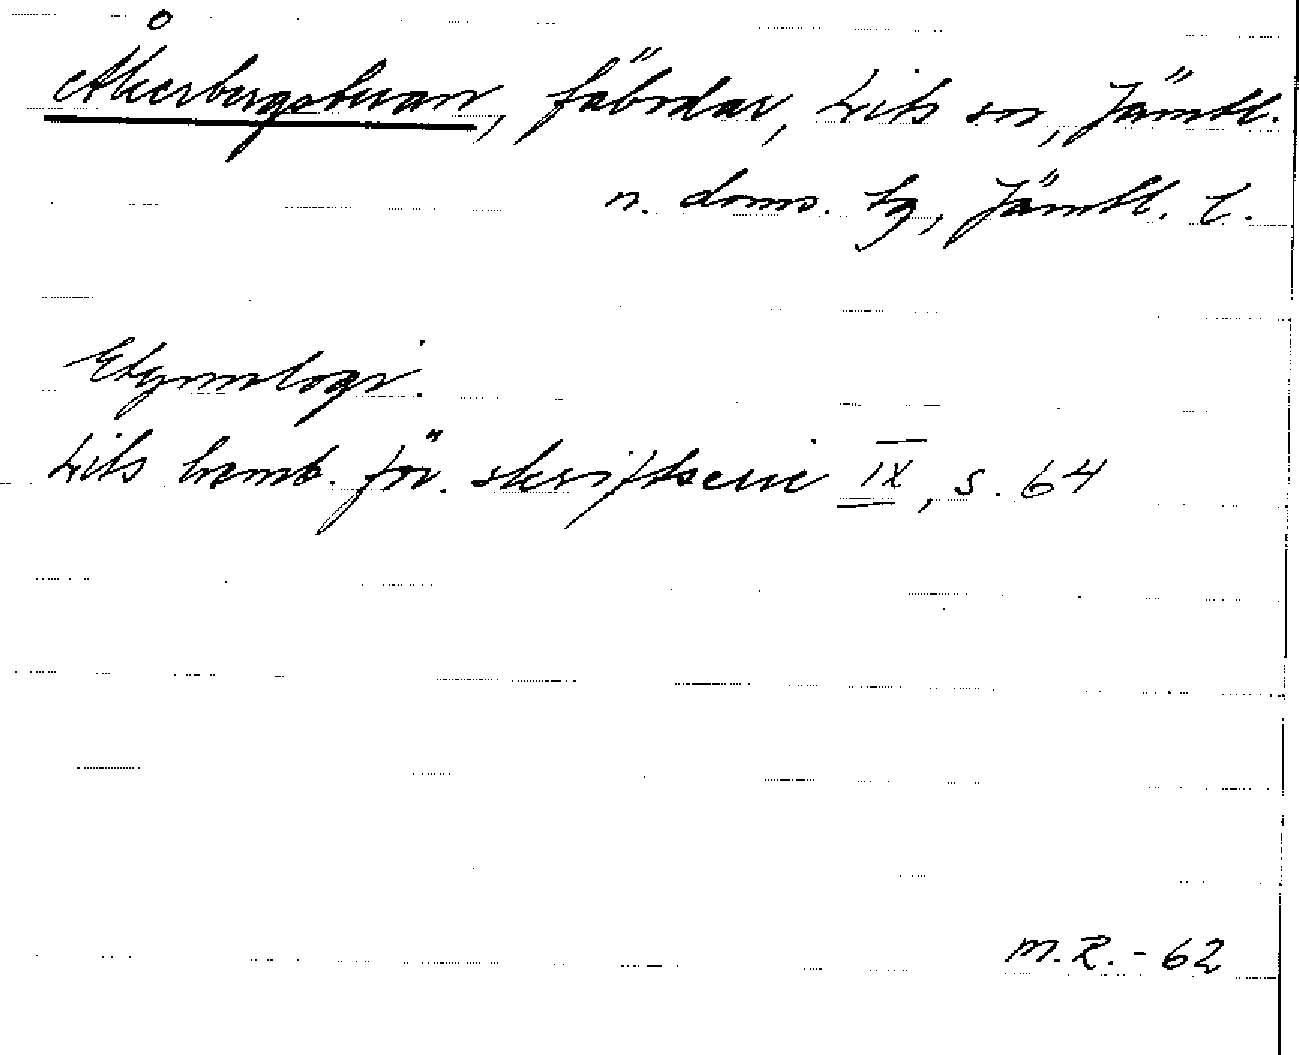 Åkerbergsbuan, fäbodar, Lits sn, Jämtl.
n. doms. tg, Jämtl. l.
Etymologi:
Lits hemb. för. skriftserie IX, s. 64
M.R. - 62